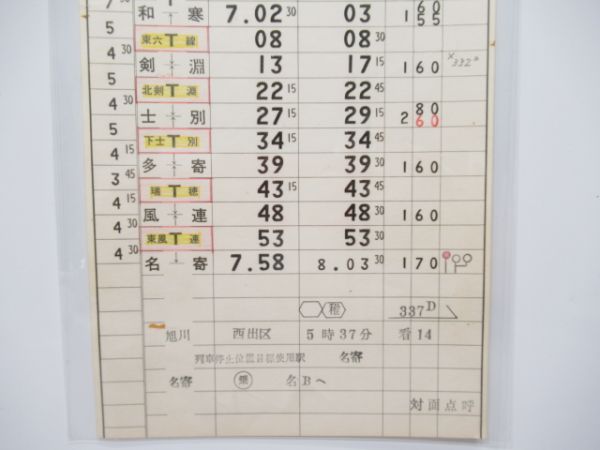 7 30 和寒 7.02 30 03 1 60 55
5 東六T線 08 08 30
5 剣淵 13 17 15 160 ×332D
4 30 北剣T淵 22 15 22 45
5 士別 27 15 29 15 2 80 60
5 下士T別 34 15 34 45
4 15 多寄 39 39 30 160
3 45 瑞T穂 43 15 43 45
4 15 風連 48 48 30 160
4 30 東風T連 53 53 30
4 30 名寄 7.58 8.03 30 170
337D
旭川 西出区 5時37分 看14
列車停止位置目標使用駅 名寄
名寄 乗 名Bへ
対面点呼